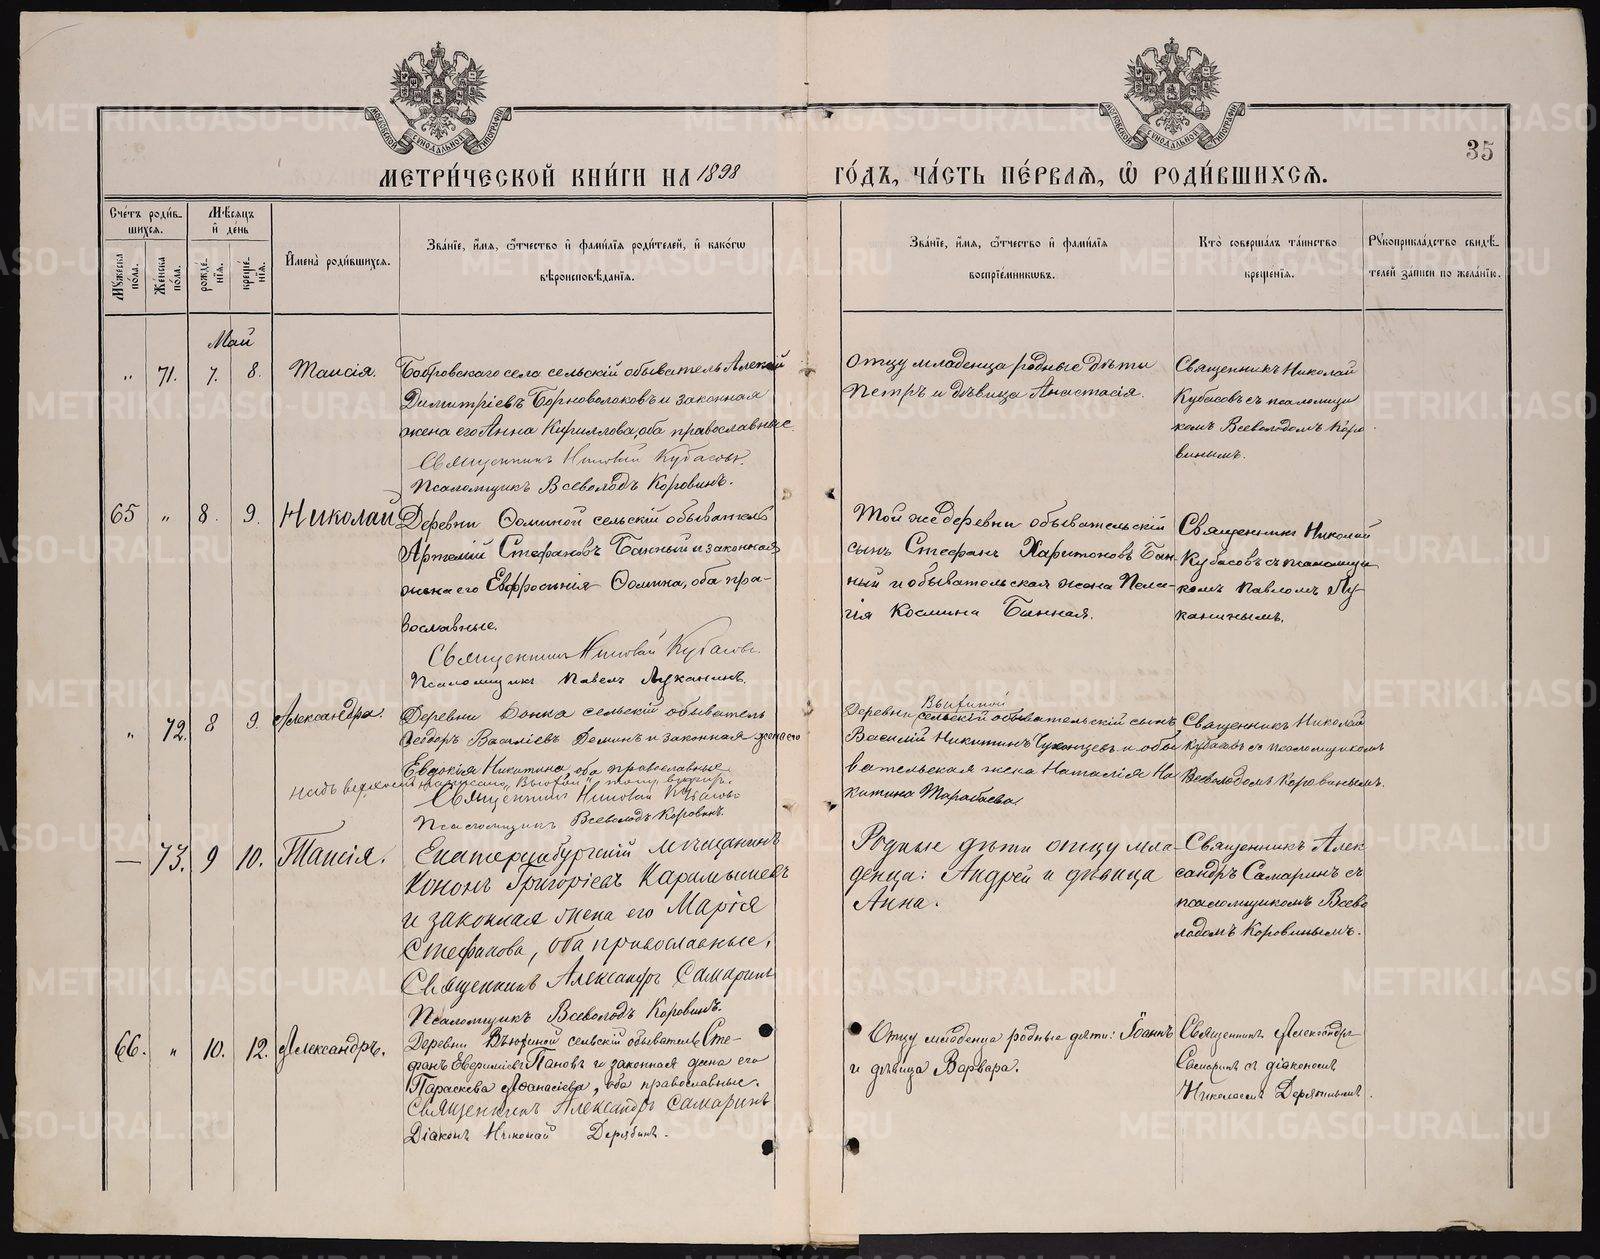 35
МЕТРИ́ЧЕСКОЙ КНИ́ГИ НА 1898 ГО́ДЪ, ЧА́СТЬ ПЕ́РВАЯ, Ѿ РОДИ́ВШИХСЯ.
Сче́тъ роди́в-
шихся.
Мужеска по́ла.
Женска по́ла.
Мѣ́сяцъ
и де́нь
рожде́нїя.
креще́нїя.
Имена̀ роди́вшихся.
Зва́нїе, и́мя, ѻ҆́тчество и фами́лїя роди́телей, и како́гѡ
вѣроисповѣ́данїя.
Зва́нїе, и́мя, ѻ҆́тчество и фами́лїя
воспрїе́мникѡвъ.
Кто̀ соверша́лъ та́инство
креще́нїя.
Рукоприкла́дство свидѣ́-
телей за́писи по жела́нїю.
Май
„ 71. 7. 8. Таисія.
Бобровскаго села сельскій обыватель Алексѣй
Димитріевъ Борноволоковъ и законная
жена его Анна Кириллова, оба православные.
Священникъ Николай Кубасовъ.
Псаломщикъ Всеволодъ Коровинъ.
Отцу младенца родные дѣти
Петръ и дѣвица Анастасія.
Священникъ Николай
Кубасовъ съ псаломщи
комъ Всеволодомъ Коро
винымъ.
65 „ 8. 9. Николай
Деревни Ѳоминой сельскій обыватель
Артемій Стефановъ Банный и законная
жена его Евфросинія Ѳомина, оба пра-
вославные.
Священникъ Николай Кубасовъ.
Псаломщикъ Павелъ Луканинъ.
Той же деревни обывательскій
сынъ Стефанъ Харитоновъ Бан
ный и обывательская жена Пела-
гія Космина Банная.
Священникъ Николай
Кубасовъ съ псаломщи
комъ Павломъ Лу-
канинымъ.
„ 72. 8 9 Александра.
Деревни сельскій обыватель
Ѳеодоръ Василіевъ Деминъ и законная жена его
Евдокія Никитина, оба православные
Священникъ Николай Кубасовъ
Псаломщикъ Всеволодъ Коровинъ.
Вьюхиной
Деревни сельскій обывательскій сынъ
Василій Никитинъ и обы
вательская жена Наталія Ни
китина Тарабаева
Священникъ Николай
Кубасовъ съ псаломщикомъ
Всеволодомъ Коровинымъ.
— 73. 9 10. Таисія.
Екатеринбургскій мѣщанинъ
Кононъ Григоріевъ Карамышевъ
и законная жена его Марія
Стефанова, оба православные.
Священникъ Александръ Самаринъ
Псаломщикъ Всеволодъ Коровинъ.
Родные дѣти отцу мла
денца: Андрей и дѣвица
Анна.
Священникъ Алек
сандръ Самаринъ съ
псаломщикомъ Всево
лодомъ Коровинымъ.
66. „ 10. 12. Александръ.
Деревни Вьюхиной сельскій обыватель Сте-
фанъ Евфиміевъ Пановъ и законная жена его
Параскева Аѳанасіева, оба православные.
Священникъ Александръ Самаринъ
Діаконъ Николай Дерябинъ.
Отцу младенца родные дѣти: Іоаннъ
и дѣвица Варвара.
Священникъ Александръ
Самаринъ съ діакономъ
Николаемъ Дерябинымъ.